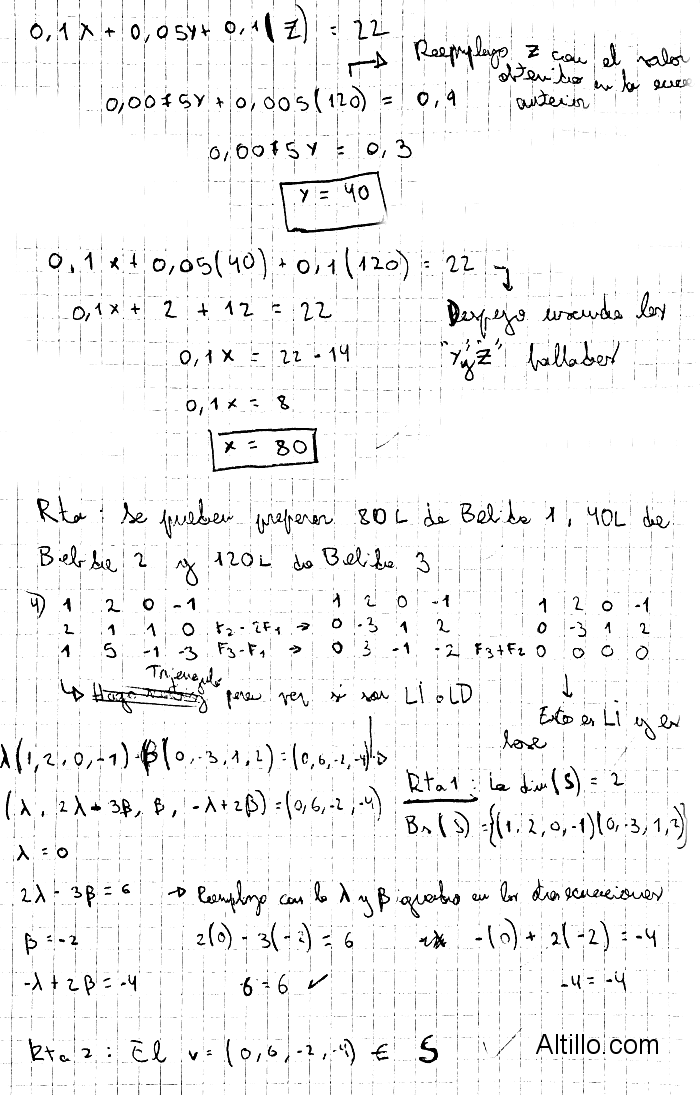 0,1x + 0,05y + 0,1(z) = 22
Reemplazo z con el valor
obtenido en la
anterior
0,0075y + 0,005(120) = 0,9
0,0075y = 0,3
y = 40
0,1x + 0,05(40) + 0,1(120) = 22
0,1x + 2 + 12 = 22
Despejo usando los
"y" y "z" hallados
0,1x = 22 - 14
0,1x = 8
x = 80
Rta: Se pueden preparar 80L de Bebida 1, 40L de
Bebida 2 y 120L de Bebida 3
4) 1 2 0 -1 1 2 0 -1 1 2 0 -1
2 1 1 0 F2-2F1 → 0 -3 1 2 0 -3 1 2
1 5 -1 -3 F3-F1 → 0 3 -1 -2 F3+F2 0 0 0 0
Triangulo
para ver si son LI o LD
Esto es LI y es
base
λ(1,2,0,-1) β(0,-3,1,2) = (0,6,-2,-4)
Rta1: La dim(S) = 2
(λ, 2λ-3β, β, -λ+2β) = (0,6,-2,-4)
Bs(S) = {(1,2,0,-1)(0,-3,1,2)}
λ = 0
2λ - 3β = 6 → Reemplazo con λ y β en las ecuaciones
β = -2 2(0) - 3(-2) = 6 -(0) + 2(-2) = -4
-λ + 2β = -4 6 = 6 ✓ -4 = -4
Rta 2: El v = (0,6,-2,-4) ∈ S
Altillo.com